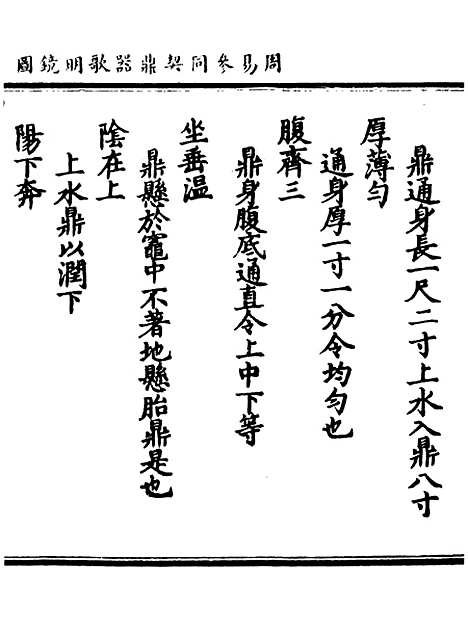 周易參同契鼎器歌明鏡圖
鼎通身長一尺二寸上水入鼎八寸
厚薄勻
通身厚一寸一分令均勻也
腹齊三
鼎身腹底通直令上中下等
坐垂溫
鼎懸於竈中不著地懸胎鼎是也
陰在上
上水鼎以潤下
陽下奔